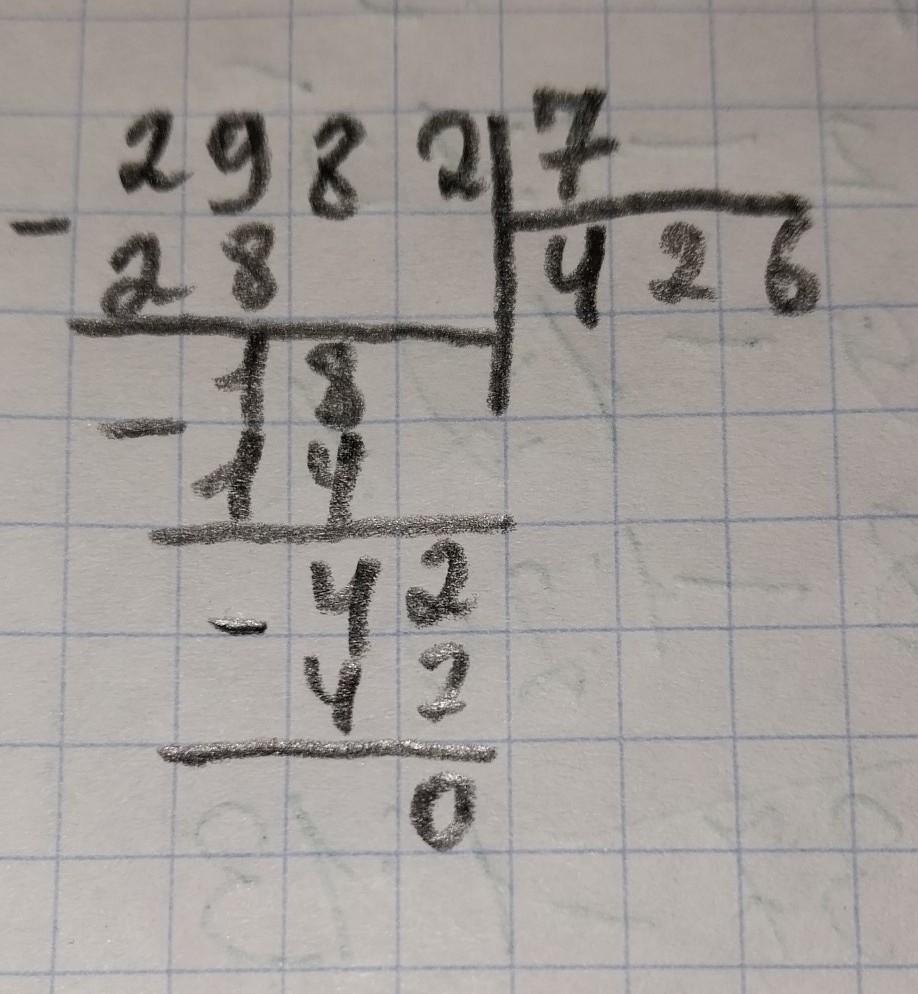 2982 7
- 28 426
18
- 14
42
- 42
0